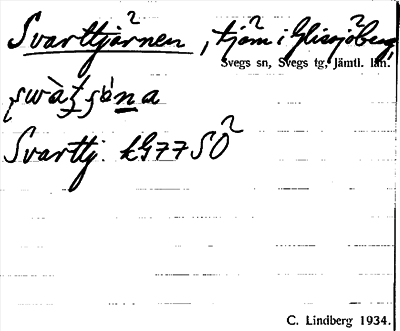 Svarttjärnen, tjärn i Glissjöberg,
Svegs sn, Svegs tg, Jämtl. län.
Svarttj. kG77SÖ
C. Lindberg 1934.